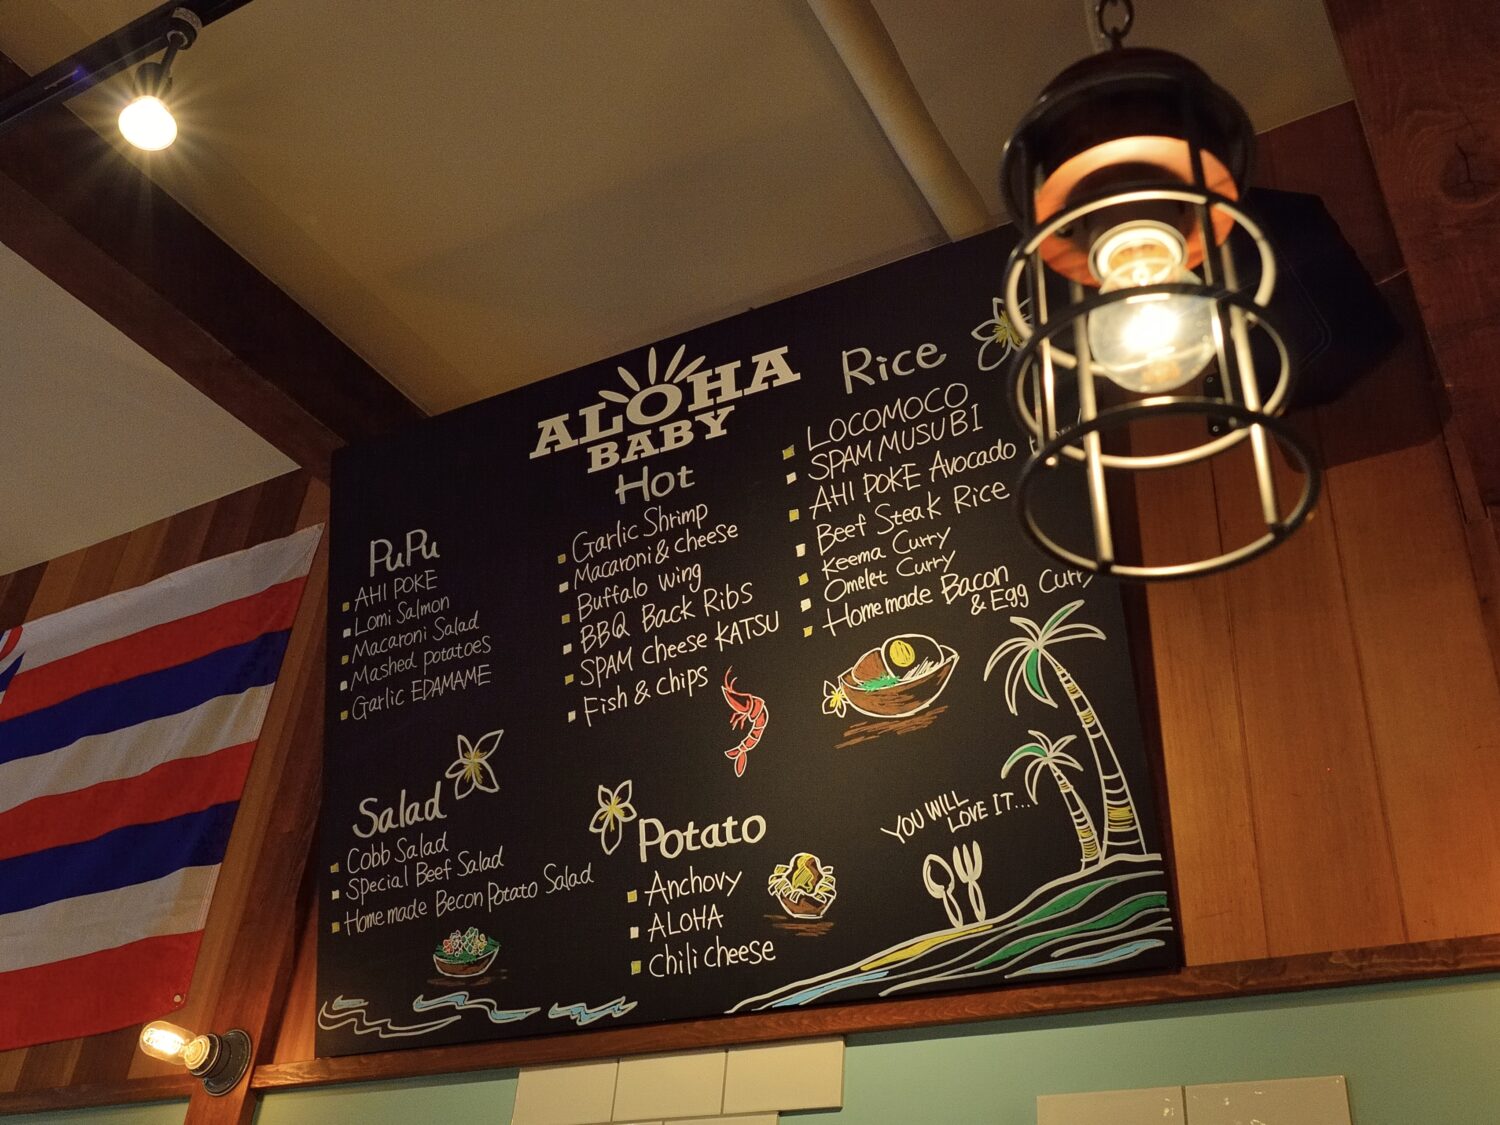 ALOHA
BABY
PuPu
AHI POKE
Lomi Salmon
Macaroni Salad
Mashed potatoes
Garlic EDAMAME
Hot
Garlic Shrimp
Macaroni & cheese
Buffalo wing
BBQ Back Ribs
SPAM cheese KATSU
Fish & chips
Rice
LOCOMOCO
SPAM MUSUBI
AHI POKE Avocado
Beef Steak Rice
Keema Curry
Omelet Curry
Homemade Bacon
& Egg Curry
Salad
Cobb Salad
Special Beef Salad
Homemade Becon Potato Salad
Potato
Anchovy
ALOHA
Chili cheese
YOU WILL
LOVE IT...